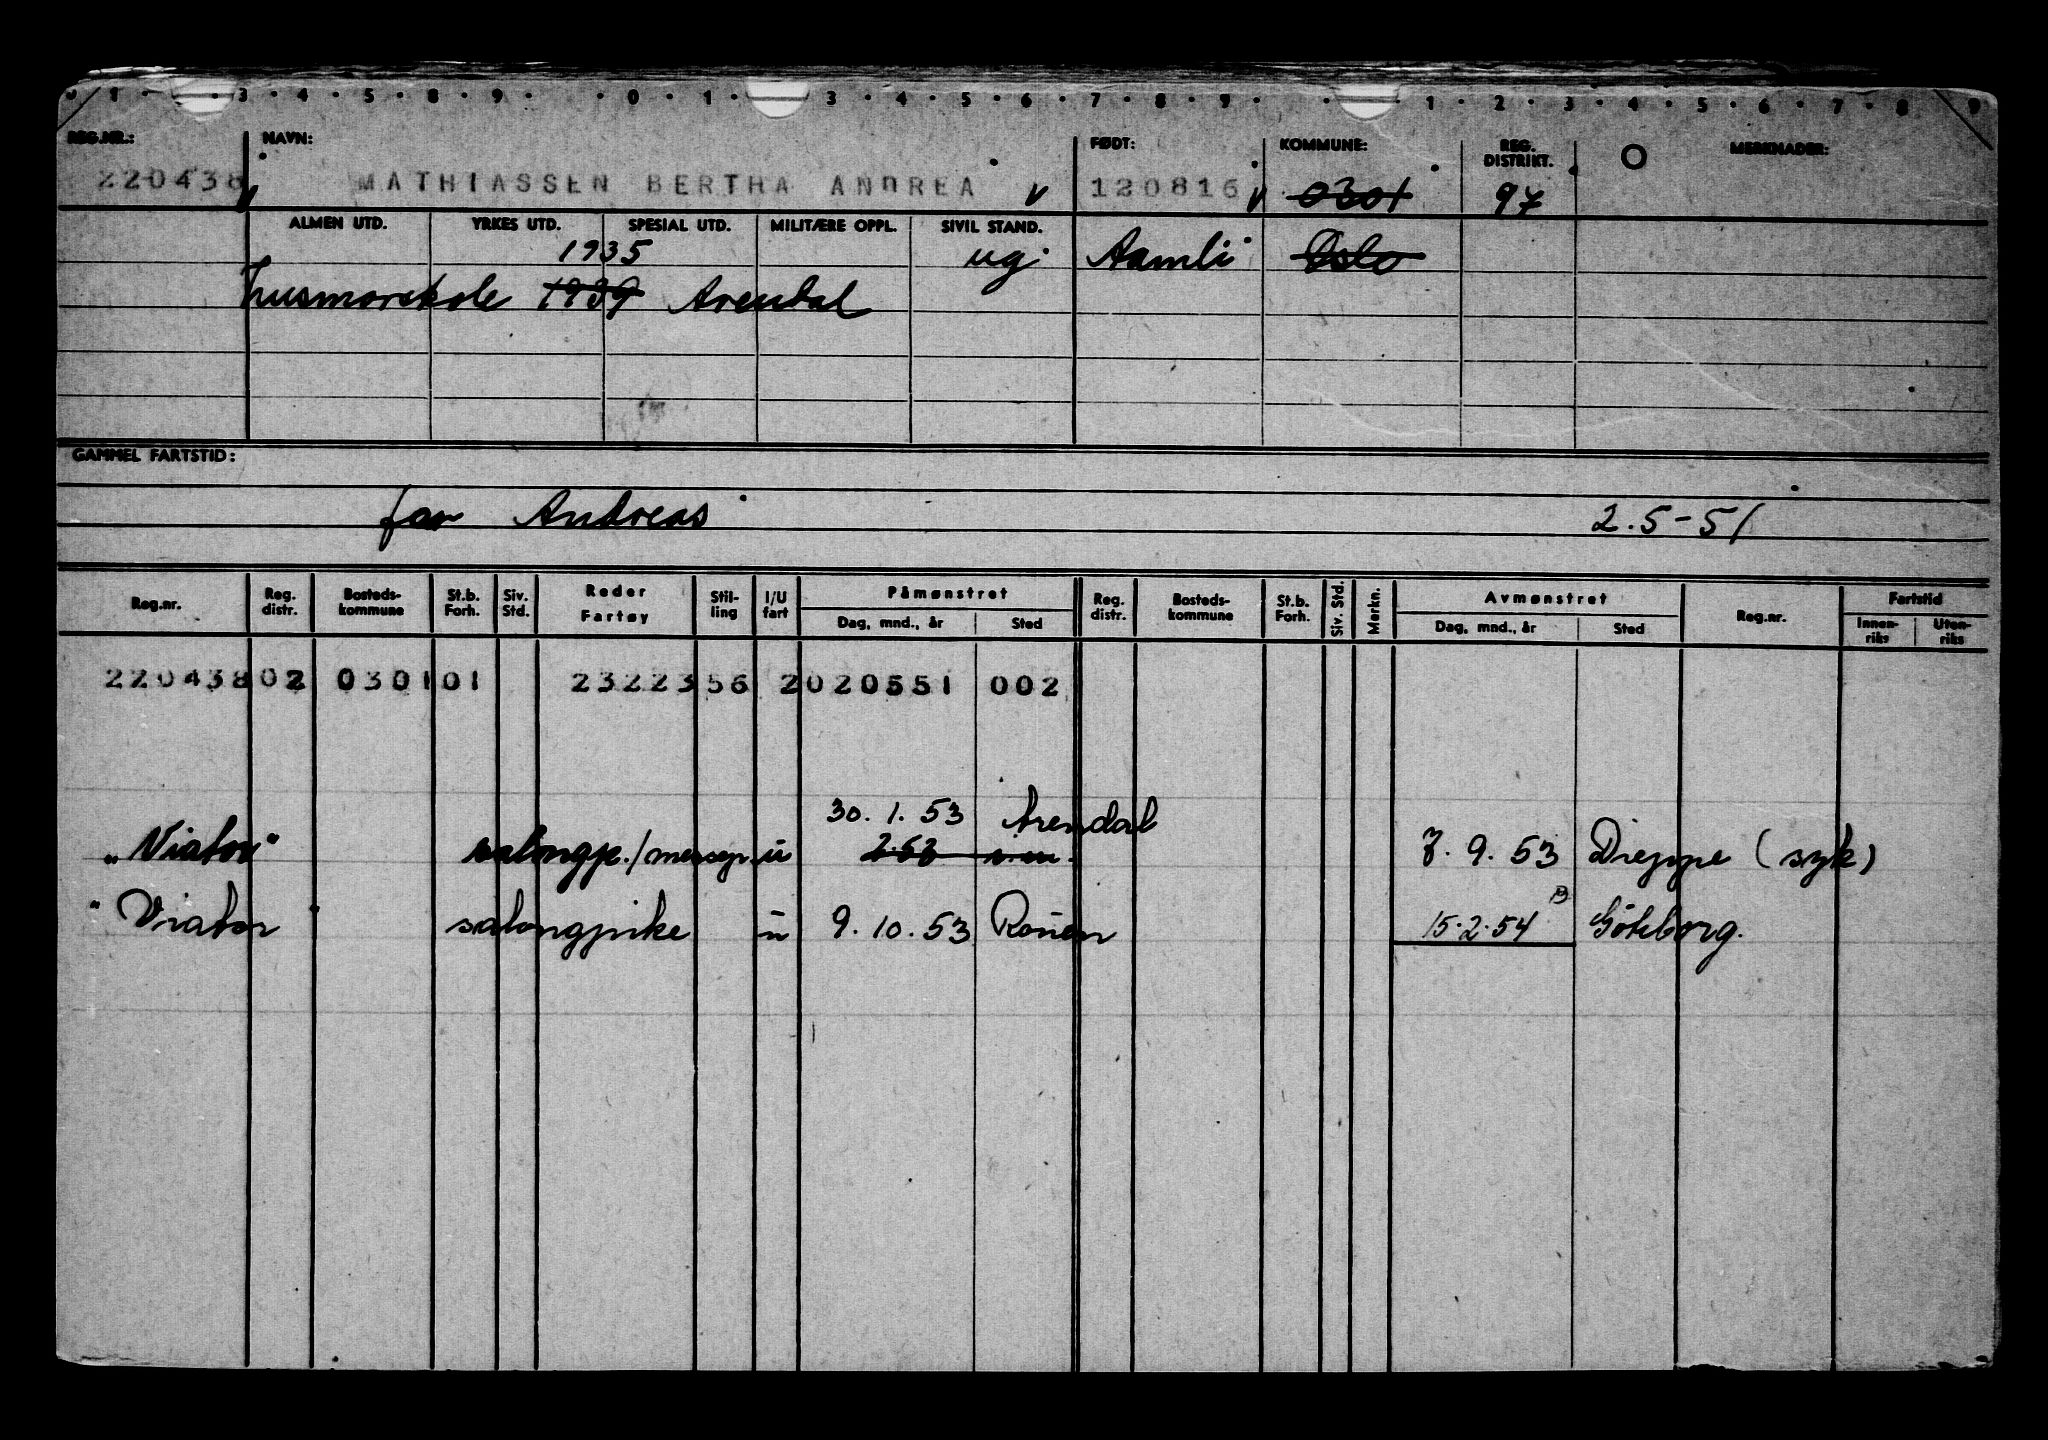 1 · 3 · 4 · 5 · 8 · 9 · · 0 · 1 · 3 · 4 · 5 · 6 · 7 · 8 · 9 · · 1 · 2 · 3 · 4 · 5 · 6 · 7 · 8 9
REG.NR.: NAVN: FØDT: KOMMUNE: REG. DISTRIKT. MERKNADER:
220438 MATHIASSEN BERTHA ANDREA 120816 0301 97
ALMEN UTD. YRKES UTD. SPESIAL UTD. MILITÆRE OPPL. SIVIL STAND.
1935 ug. Aamli Oslo
husmorskole 1939 Arendal
GAMMEL FARTSTID:
far Andreas 2.5-51
Reg.nr. Reg. distr. Bosteds-kommune St.b. Forh. Siv. Std. Reder Fartøy Stil-ling I/U fart Påmønstret Dag, mnd., år Sted Reg. distr. Bosteds-kommune St.b. Forh. Siv. Std. Merkn. Avmønstret Dag, mnd., år Sted Reg.nr. Fartstid Innen-riks Uten-riks
220438 02 0301 01 23223 56 2 020551 002
30.1.53 Arendal
„Viator" salongp./messep. u 2.53 7.9.53 Dieppe (syk)
"Viator" salongpike u 9.10.53 Rouen 15.2.54 Göteborg.